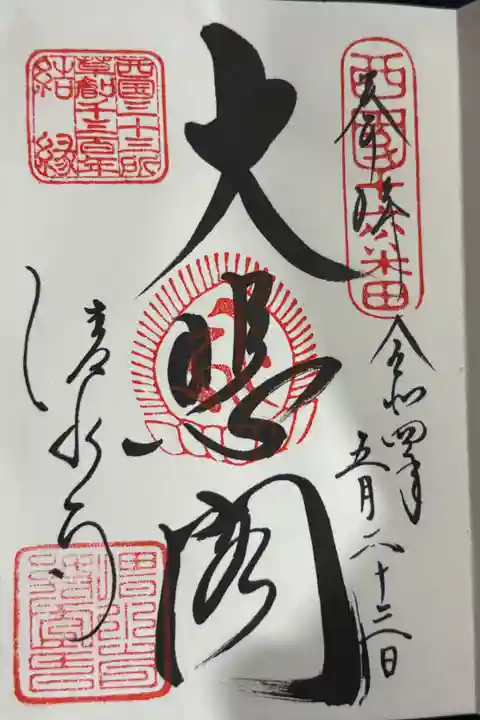 奉拝
西國十六番
令和四年
五月二十三日
大悲閣
西国三十三所
草創千三百年
結縁
清水寺